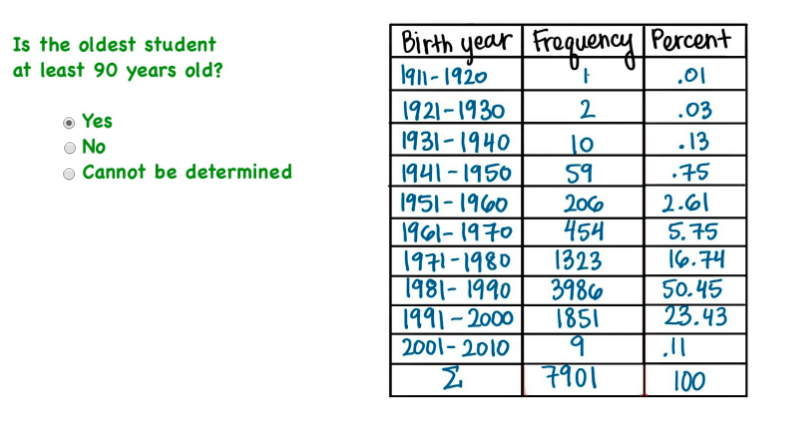 Is the oldest student
at least 90 years old?
Yes
No
Cannot be determined
Birth year Frequency Percent
1911-1920 1 .01
1921-1930 2 .03
1931-1940 10 .13
1941-1950 59 .75
1951-1960 206 2.61
1961-1970 454 5.75
1971-1980 1323 16.74
1981-1990 3986 50.45
1991-2000 1851 23.43
2001-2010 9 .11
Σ 7901 100